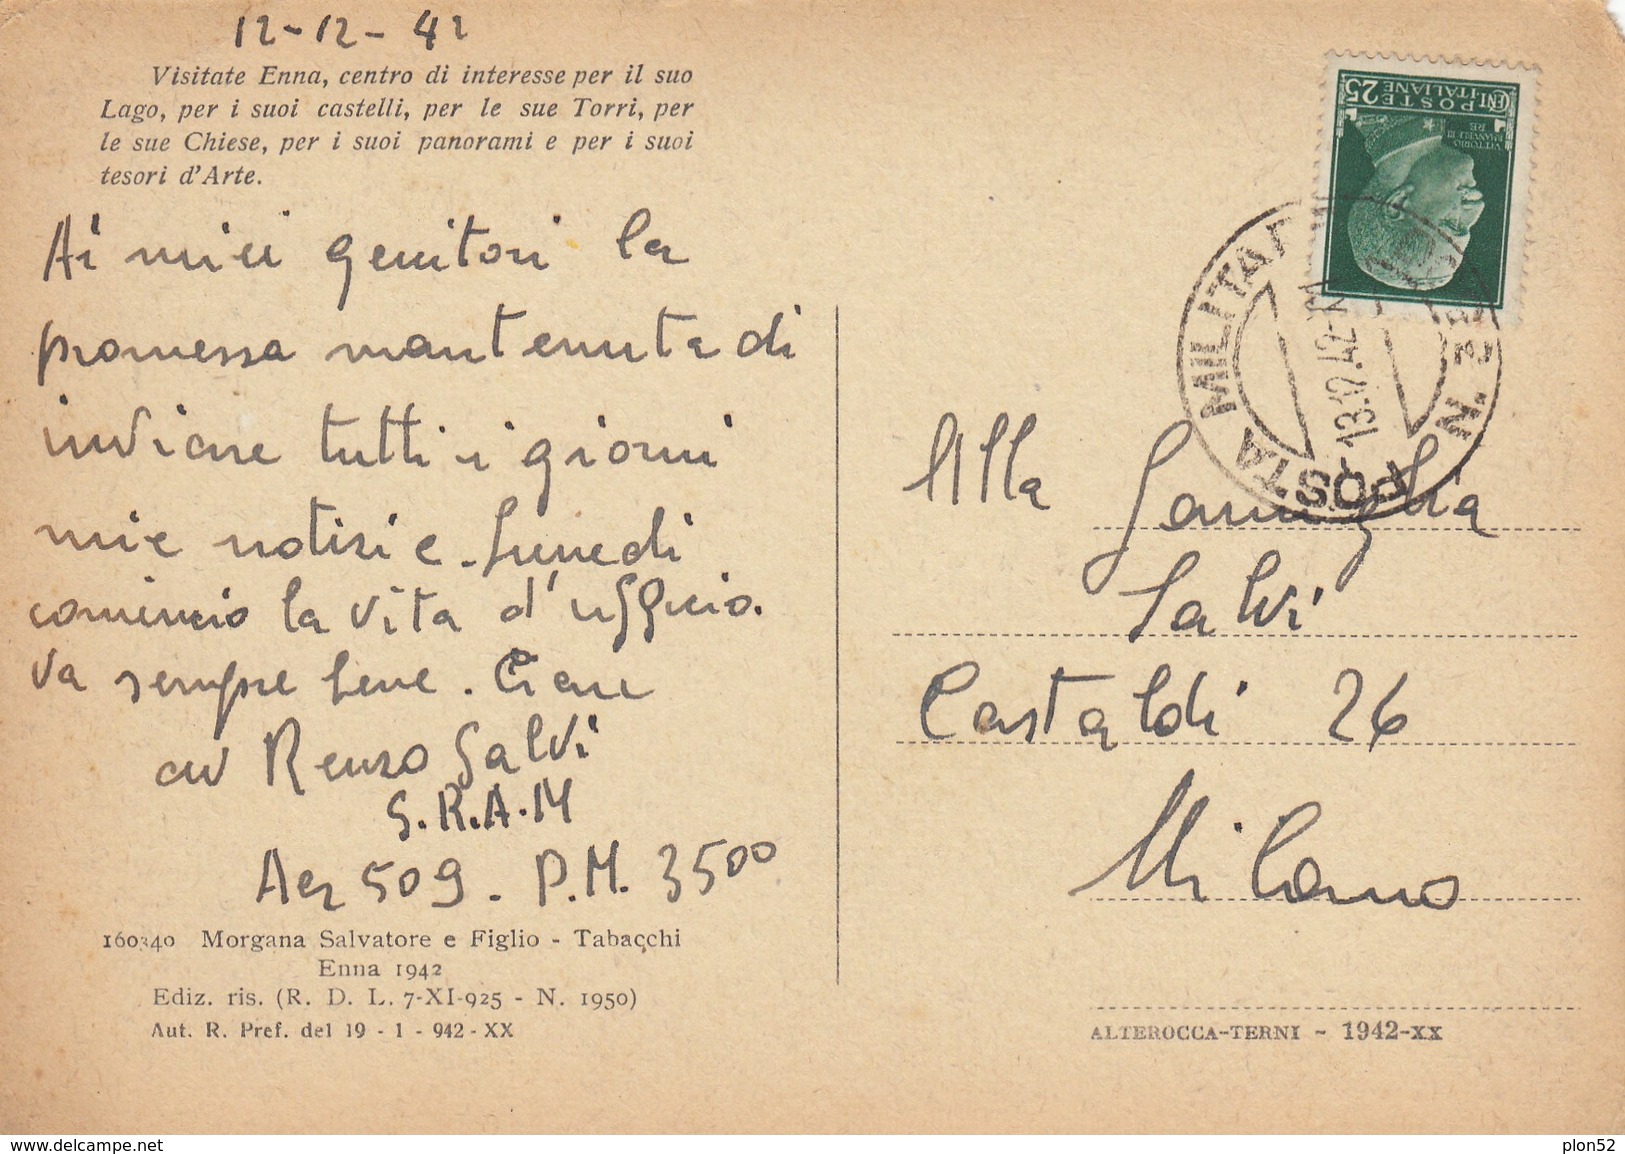 12-12-42
Visitate Enna, centro di interesse per il suo
Lago, per i suoi castelli, per le sue Torri, per
le sue Chiese, per i suoi panorami e per i suoi
tesori d'Arte.
Ai miei genitori la
promessa mantenuta di
inviare tutti i giorni
mie notizie. Lunedì
comincio la vita d'ufficio.
Va sempre bene. Ciau
av Renzo Salvi
S.R.A.M
Aer 509. P.M. 3500
160340 Morgana Salvatore e Figlio - Tabacchi
Enna 1942
Ediz. ris. (R. D. L. 7-XI-925 - N. 1950)
Aut. R. Pref. del 19 - 1 - 942 - XX
CENT. 25
POSTE
ITALIANE
VITTORIO
EMANUELE III
RE
POSTA MILITARE N. 3
13.12.42
Alla Famiglia
Salvi
Castaldi 26
Milano
ALTEROCCA-TERNI - 1942-XX
www.delcampe.net
plon52